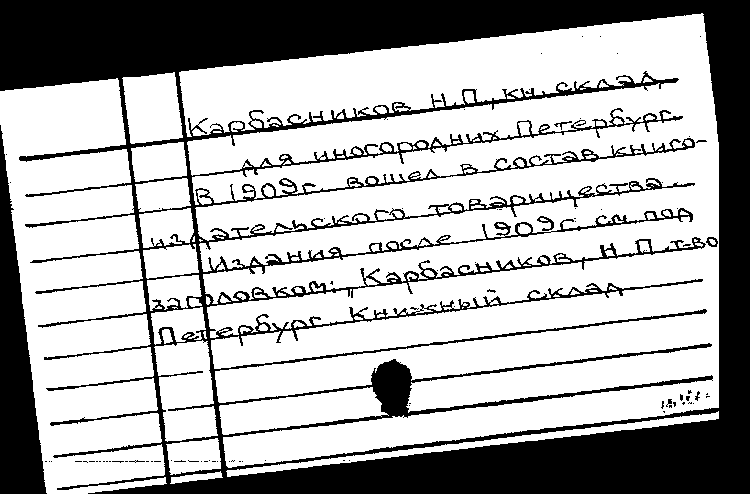 Карбасников Н.П., кн. склад
для иногородних. Петербург.
В 1909г. вошел в состав книго-
издательского товарищества.
Издания после 1909г. см. под
заголовком: „Карбасников, Н.П. т-во
Петербург. Книжный склад.